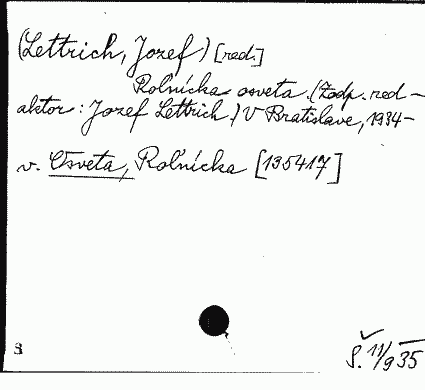 (Lettrich, Jozef) [red.]
Roľnícka osveta. (Zodp. red-
aktor: Jozef Lettrich.) V Bratislave, 1934-
v. Osveta, Roľnícka [135417]
3
S. 11/9 35